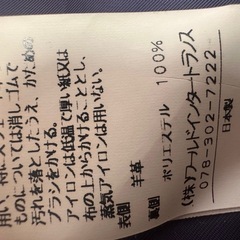 用い、特に
ものについては消しゴムで
汚れを落としたうえ、かための
ブラシをかける。
アイロンは低温で厚い紙又は
布の上からかけることとし、
蒸気アイロンは用いない。
表側 羊革
裏側 ポリエステル 100%
(株)ワールドインタートランス
078-302-7222
日本製